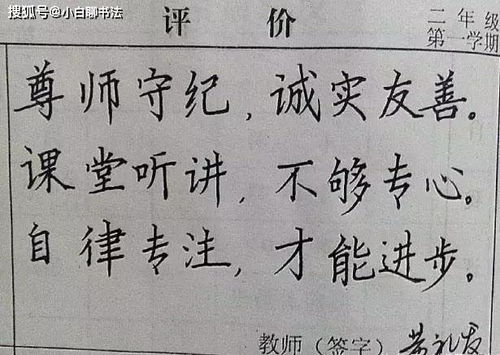 搜狐号@小白聊书法
评价
二年级
第一学期
尊师守纪,诚实友善。
课堂听讲,不够专心。
自律专注,才能进步。
教师(签字)